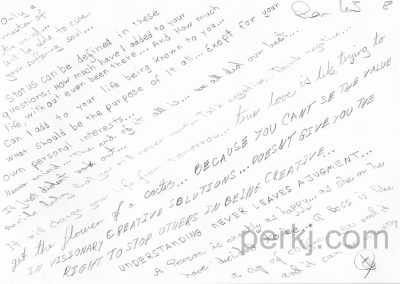 Only a
master of
the mind...
will be able to cure
your suffering soul...
8
Status can be defined in these
questions: How much have I added to your
life without even been there... And how much
can I add to your life being known to you...
what should be the purpose of it all... Exept for your
own personal interests...
Never mind... The end of it all is... we all did our best...
It just didn't work out...
Decide today that you will never ever... talk negative... Think negative...
It will change your life from tomorrow... true love is like trying to
get the flower of a cactus... BECAUSE YOU CANT SE THE VALUE
IN VISIONARY CREATIVE SOLUTIONS... DOESNT GIVE YOU THE
RIGHT TO STOP OTHERS IN BEING CREATIVE...
UNDERSTANDING NEVER LEAVES A JUGMENT...
A Person is exactly as happy... as she or he
have decided to be... A Boss is like
a cup of
and it can
perkj.com